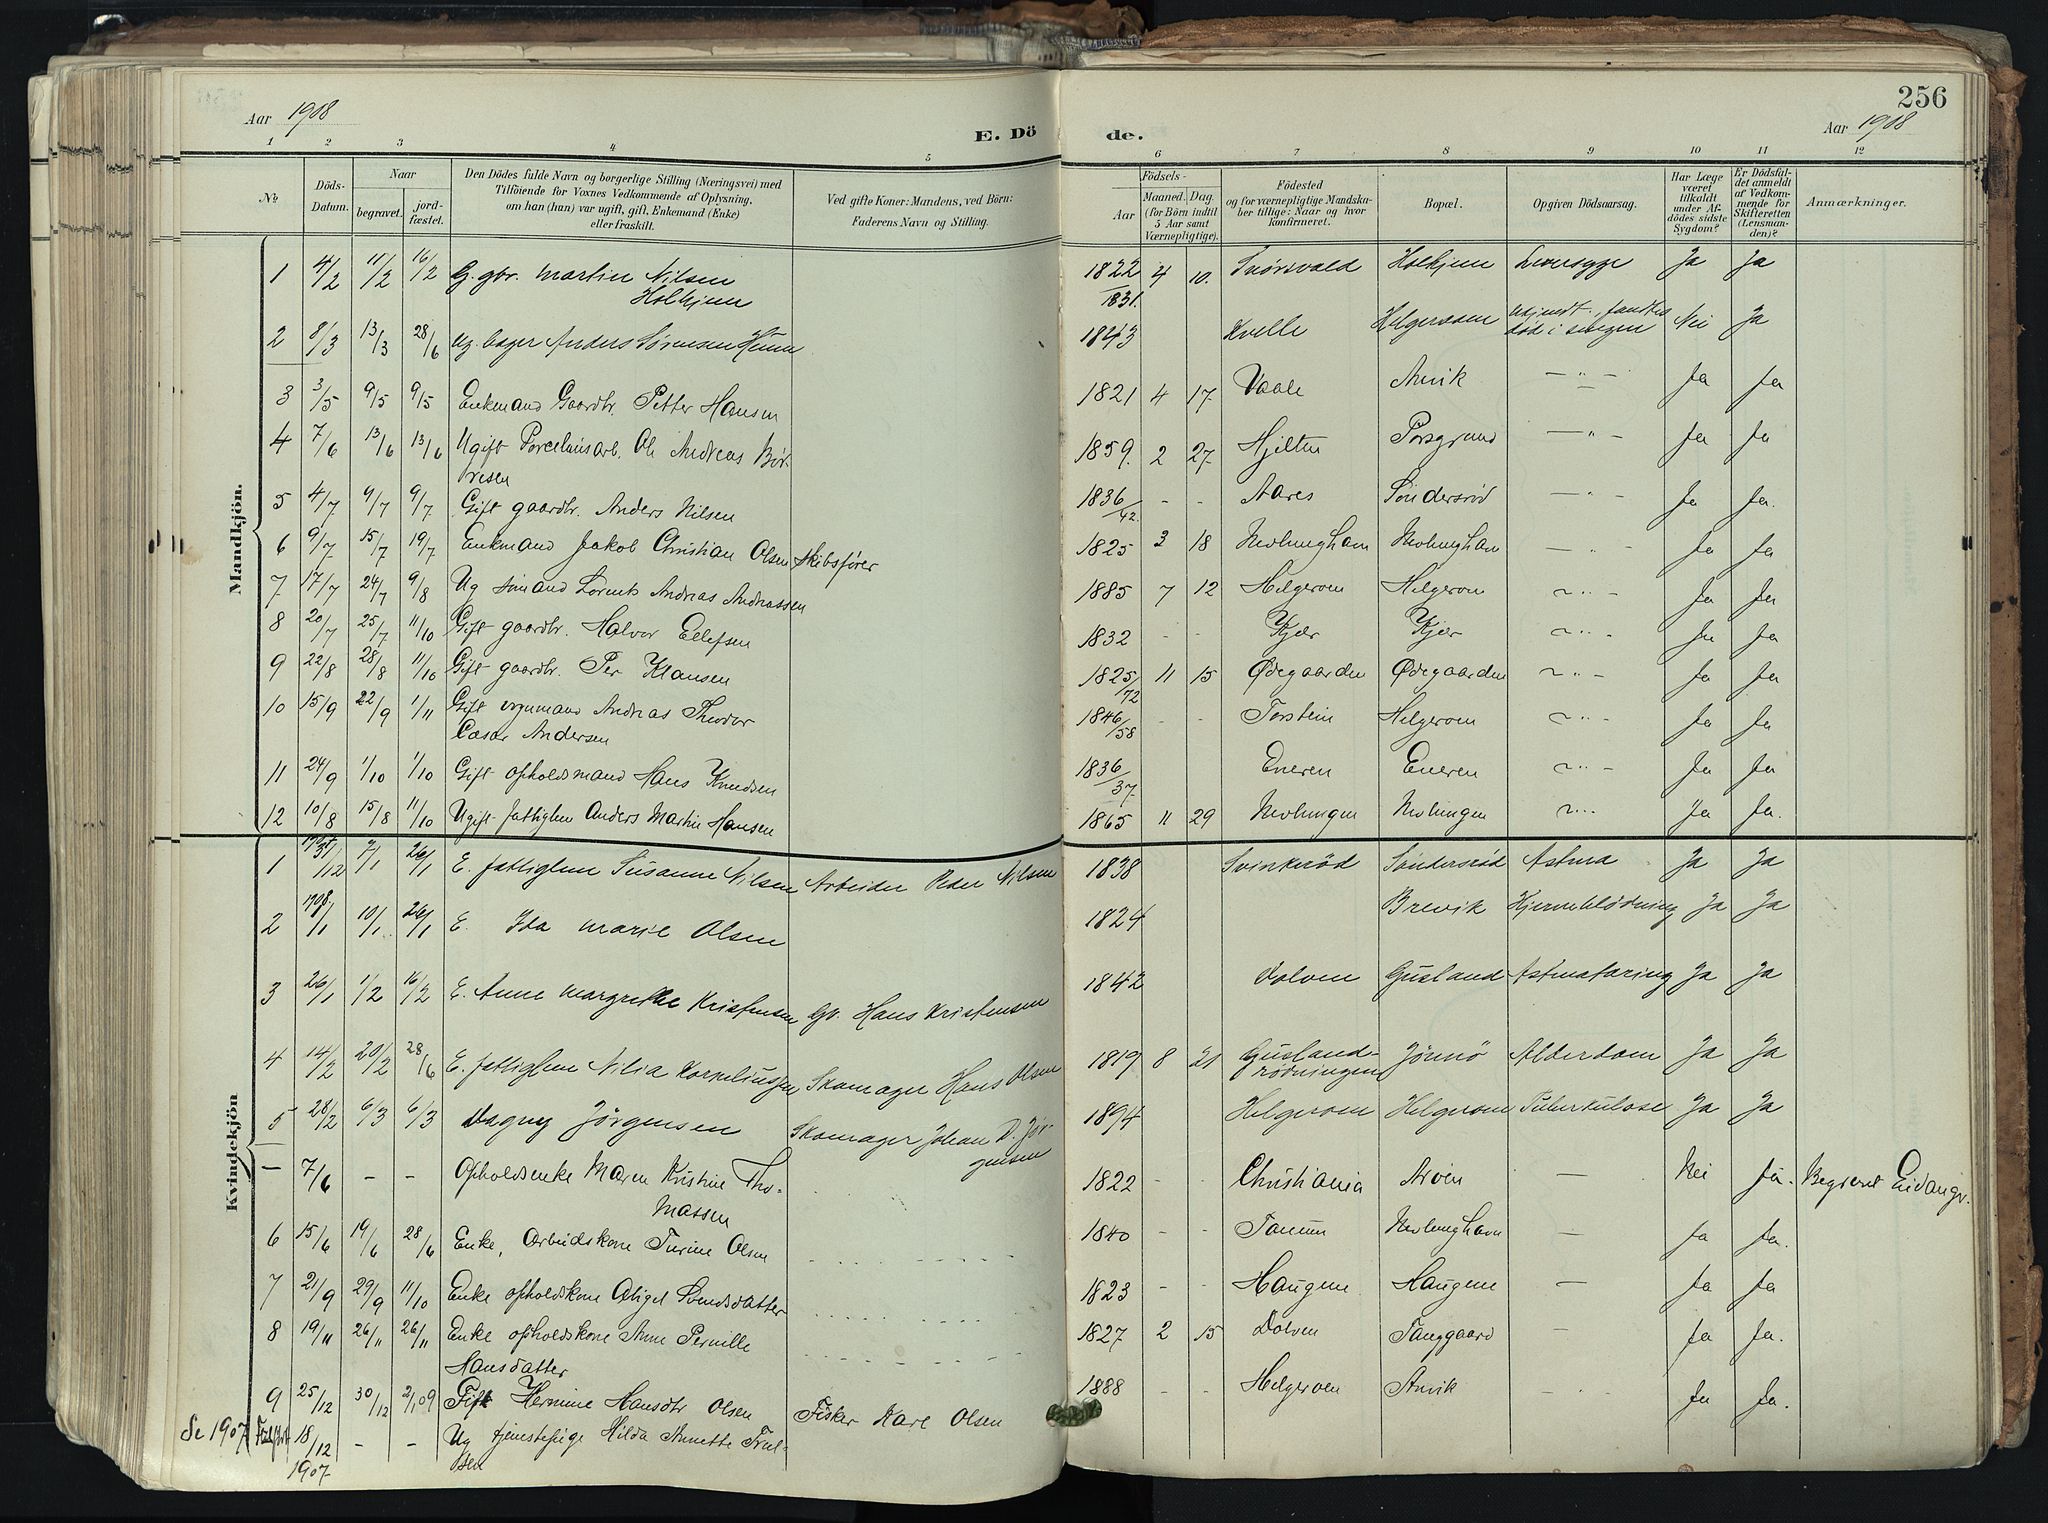 Aar 1908
E. Dö
de.
256
Aar 1908
1 2 3 4 5 6 7 8 9 10 11 12
No Döds-Datum. Naar begravet. jord-fæstet. Den Dödes fulde Navn og borgerlige Stilling (Næringsvei) med Tilföiende for Voxnes Vedkommende af Oplysning, om han (hun) var ugift, gift, Enkemand (Enke) eller fraskilt. Ved gifte Koner: Mandens, ved Börn: Faderens Navn og Stilling. Födsels- Aar Maaned. Dag. (for Börn indtil 5 Aar samt Værnepligtige). Födested og for værnepligtige Mandska-ber tillige: Naar og hvor konfirmeret. Bopæl. Opgiven Dödsaarsag. Har Læge været tilkaldt under Af-dödes sidste Sygdom? Er Dödsfal-det anmeldt af Vedkom-mende for Skifteretten (Lensman-den)? Anmærkninger.
Mandkjön.
1 4/2 11/2 16/2 G. gbr. Martin Nilsen 1822 4 10. Holhjem Leversyge Ja Ja
Holhjem 1831.
2 8/3 13/3 28/6 Ug. bager Anders Sørensen 1843 Kvelle Helgeroen fandtes død i sengen Nei Ja
3 3/5 9/5 9/5 Enkmand Gaardbr. Petter Hansen 1821 4 17 Vaale Anvik — " — Ja Ja
4 7/6 13/6 13/6 Ugift Porcelinsarb. Ole Andreas Bör- 1859. 2 27 Hjelten Porsgrund — " — Ja Ja
resen
5 4/7 9/7 9/7 Gift gaardbr. Anders Nilsen 1836/42. - - Aares Söndersröd — " — Ja Ja.
6 9/7 15/7 19/7 Enkmand Jakob Christian Olsen Skibsfører 1825 3 18 Nevlunghavn Nevlunghavn — " — Ja Ja
7 17/7 24/7 9/8 Ug sömand Lorents Andreas Andreassen 1885 7 12 Helgeroen Helgeroen ~ " - Ja Ja
8 20/7 25/7 11/10 Gift gaardbr. Halvor Ellefsen 1832 - - Kjær Kjær ~ " - Ja Ja
9 22/8 28/8 11/10 Gift gaardbr. Per Klausen 1825/72 11 15 Ødegaarden Ødegaarden ~ " - Ja Ja
10 15/9 22/9 1/11 Gift vognmand Andreas Theodor 1846/58 - - Torstein Helgeroen ~ " - Ja Ja
Cæsar Andersen
11 24/9 1/10 1/10 Gift opholdsmand Hans Knudsen 1836/37. Eneren Eneren ~ " - Ja Ja
12 10/8 15/8 11/10 Ugift fattiglem Anders Martin Hansen 1865 11 29 Nevlungen Nevlungen ~ " - Ja Ja.
Kvindekjön
1 31/12 7/1 26/1 E. fattiglem Susanne Nilsen Arbeider Peder Nilsen 1838 Svinkeröd Söndersröd Astma Ja Ja
2 10/1 26/1 E. Ida Marie Olsen 1824 Brevik Hjerneblödning Ja Ja
3 26/1 1/2 16/2 E. Anne Margrethe Kristensen Gb. Hans Kristensen 1842 Dolven Gusland Astmataring Ja Ja
4 14/2 20/2 28/6 E. fattiglem Nilia Korneliussen Skomager Hans Olsen 1819 8 21 Gusland- Jönnö Alderdom Ja Ja
rödningen
5 28/2 6/3 6/3 Dagny Jørgensen Skomager Johan D. Jör- 1894 Helgeroen Helgeroen Tuberkulose Ja Ja
gensen
— 7/6 - - Opholdsenke Maren Kristine Tho- 1822 Christiania Aröen — Nei Ja. Begravet Eidanger.
massen
6 15/6 19/6 28/6 Enke, Arbeidskone Turine Olsen 1840 - - Tanum Nevlunghavn — Ja Ja.
7 21/9 29/9 11/10 Enke opholdskone Abigel Svendsdatter 1823 - - Haugene Haugene — Ja Ja
8 19/11 26/11 26/11 Enke opholdskone Anne Pernille 1827 2 15 Dolven Tanggaard — Ja Ja.
Hansdatter
9 25/12 30/12 2/1 09 Gift Hermine Hansdtr Olsen Fisker Karl Olsen 1888 - - Helgeroen Anvik Ja Ja.
Se 1907 18/12 1907 - - Ug tjenestepige Hilda Annette Trul-
sen